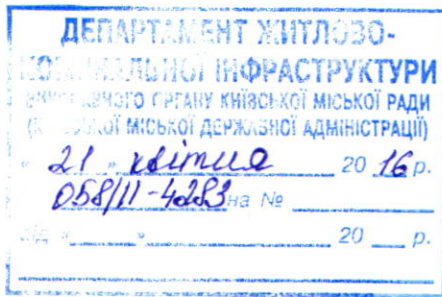 ДЕПАРТАМЕНТ ЖИТЛОВО-
КОМУНАЛЬНОЇ ІНФРАСТРУКТУРИ
ВИКОНАВЧОГО ОРГАНУ КИЇВСЬКОЇ МІСЬКОЇ РАДИ
(КИЇВСЬКОЇ МІСЬКОЇ ДЕРЖАВНОЇ АДМІНІСТРАЦІЇ)
« 21 » квітня 20 16 р.
058/11-4283 на №
від « » 20 р.